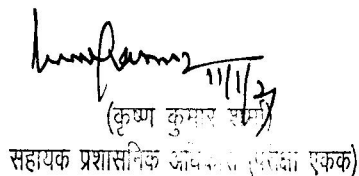 11/1/2
(कृष्ण कुमार शर्मा)
सहायक प्रशासनिक अधिकारी (परीक्षा एकक)